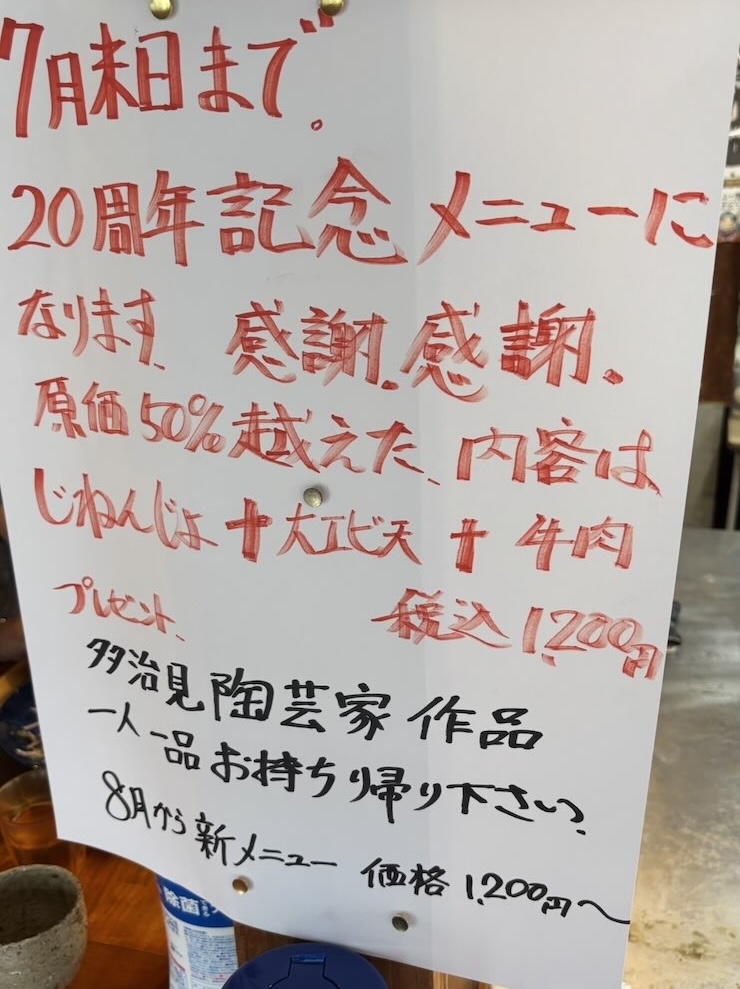 7月末日まで。
20周年記念メニューに
なります、感謝.感謝.
原価50%越えた、内容は
じねんじょ+大エビ天+牛肉
プレゼント、税込1,200円
多治見陶芸家作品
一人一品お持ち帰り下さい。
8月から新メニュー 価格1,200円〜
除菌